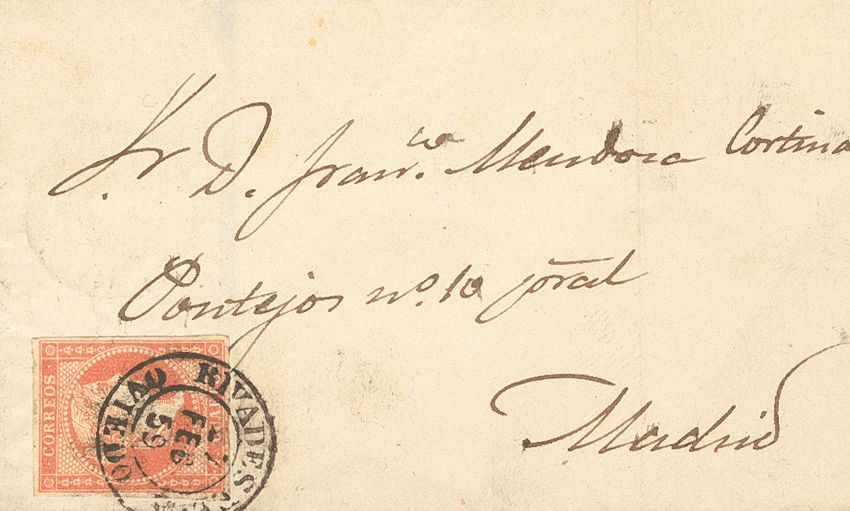 Sr D. Fran.co Mendoza Cortina
Pontejos no. 10 pral
Madrid
CORREOS
RIVADES
OVIEDO
FEB
59